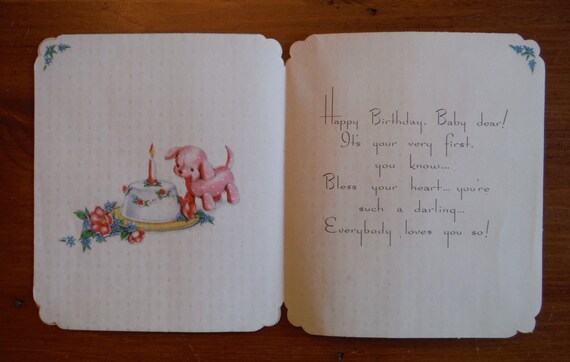 Happy Birthday, Baby dear!
It's your very first,
you know...
Bless your heart... you're
such a darling...
Everybody loves you so!